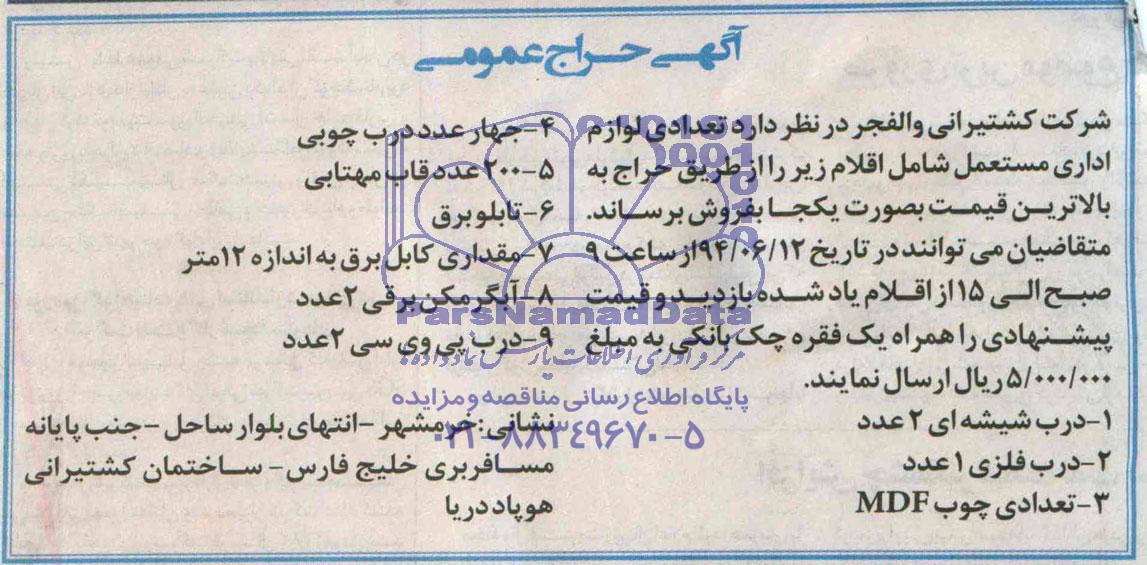 آگهی حراج عمومی
شرکت کشتیرانی والفجر در نظر دارد تعدادی لوازم
اداری مستعمل شامل اقلام زیر را از طریق حراج به
بالاترین قیمت بصورت یکجا بفروش برساند.
متقاضیان می توانند در تاریخ ۹۴/۰۶/۱۲ از ساعت ۹
صبح الی ۱۵ از اقلام یاد شده بازدید و قیمت
پیشنهادی را همراه یک فقره چک بانکی به مبلغ
۵/۰۰۰/۰۰۰ ریال ارسال نمایند.
۱-درب شیشه ای ۲ عدد
۲-درب فلزی ۱ عدد
۳-تعدادی چوب MDF
۴-چهار عدد درب چوبی
۵-۲۰۰ عدد قاب مهتابی
۶-تابلو برق
۷-مقداری کابل برق به اندازه ۱۲متر
۸-آبگرمکن برقی ۲عدد
۹-درب پی وی سی ۲عدد
نشانی: خرمشهر-انتهای بلوار ساحل-جنب پایانه
مسافربری خلیج فارس-ساختمان کشتیرانی
هوپاد دریا
ParsNamadData
مرکز فرآوری اطلاعات پارس نماد داده ها
پایگاه اطلاع رسانی مناقصه و مزایده
۰۲۱-۸۸۳۴۹۶۷۰-۵